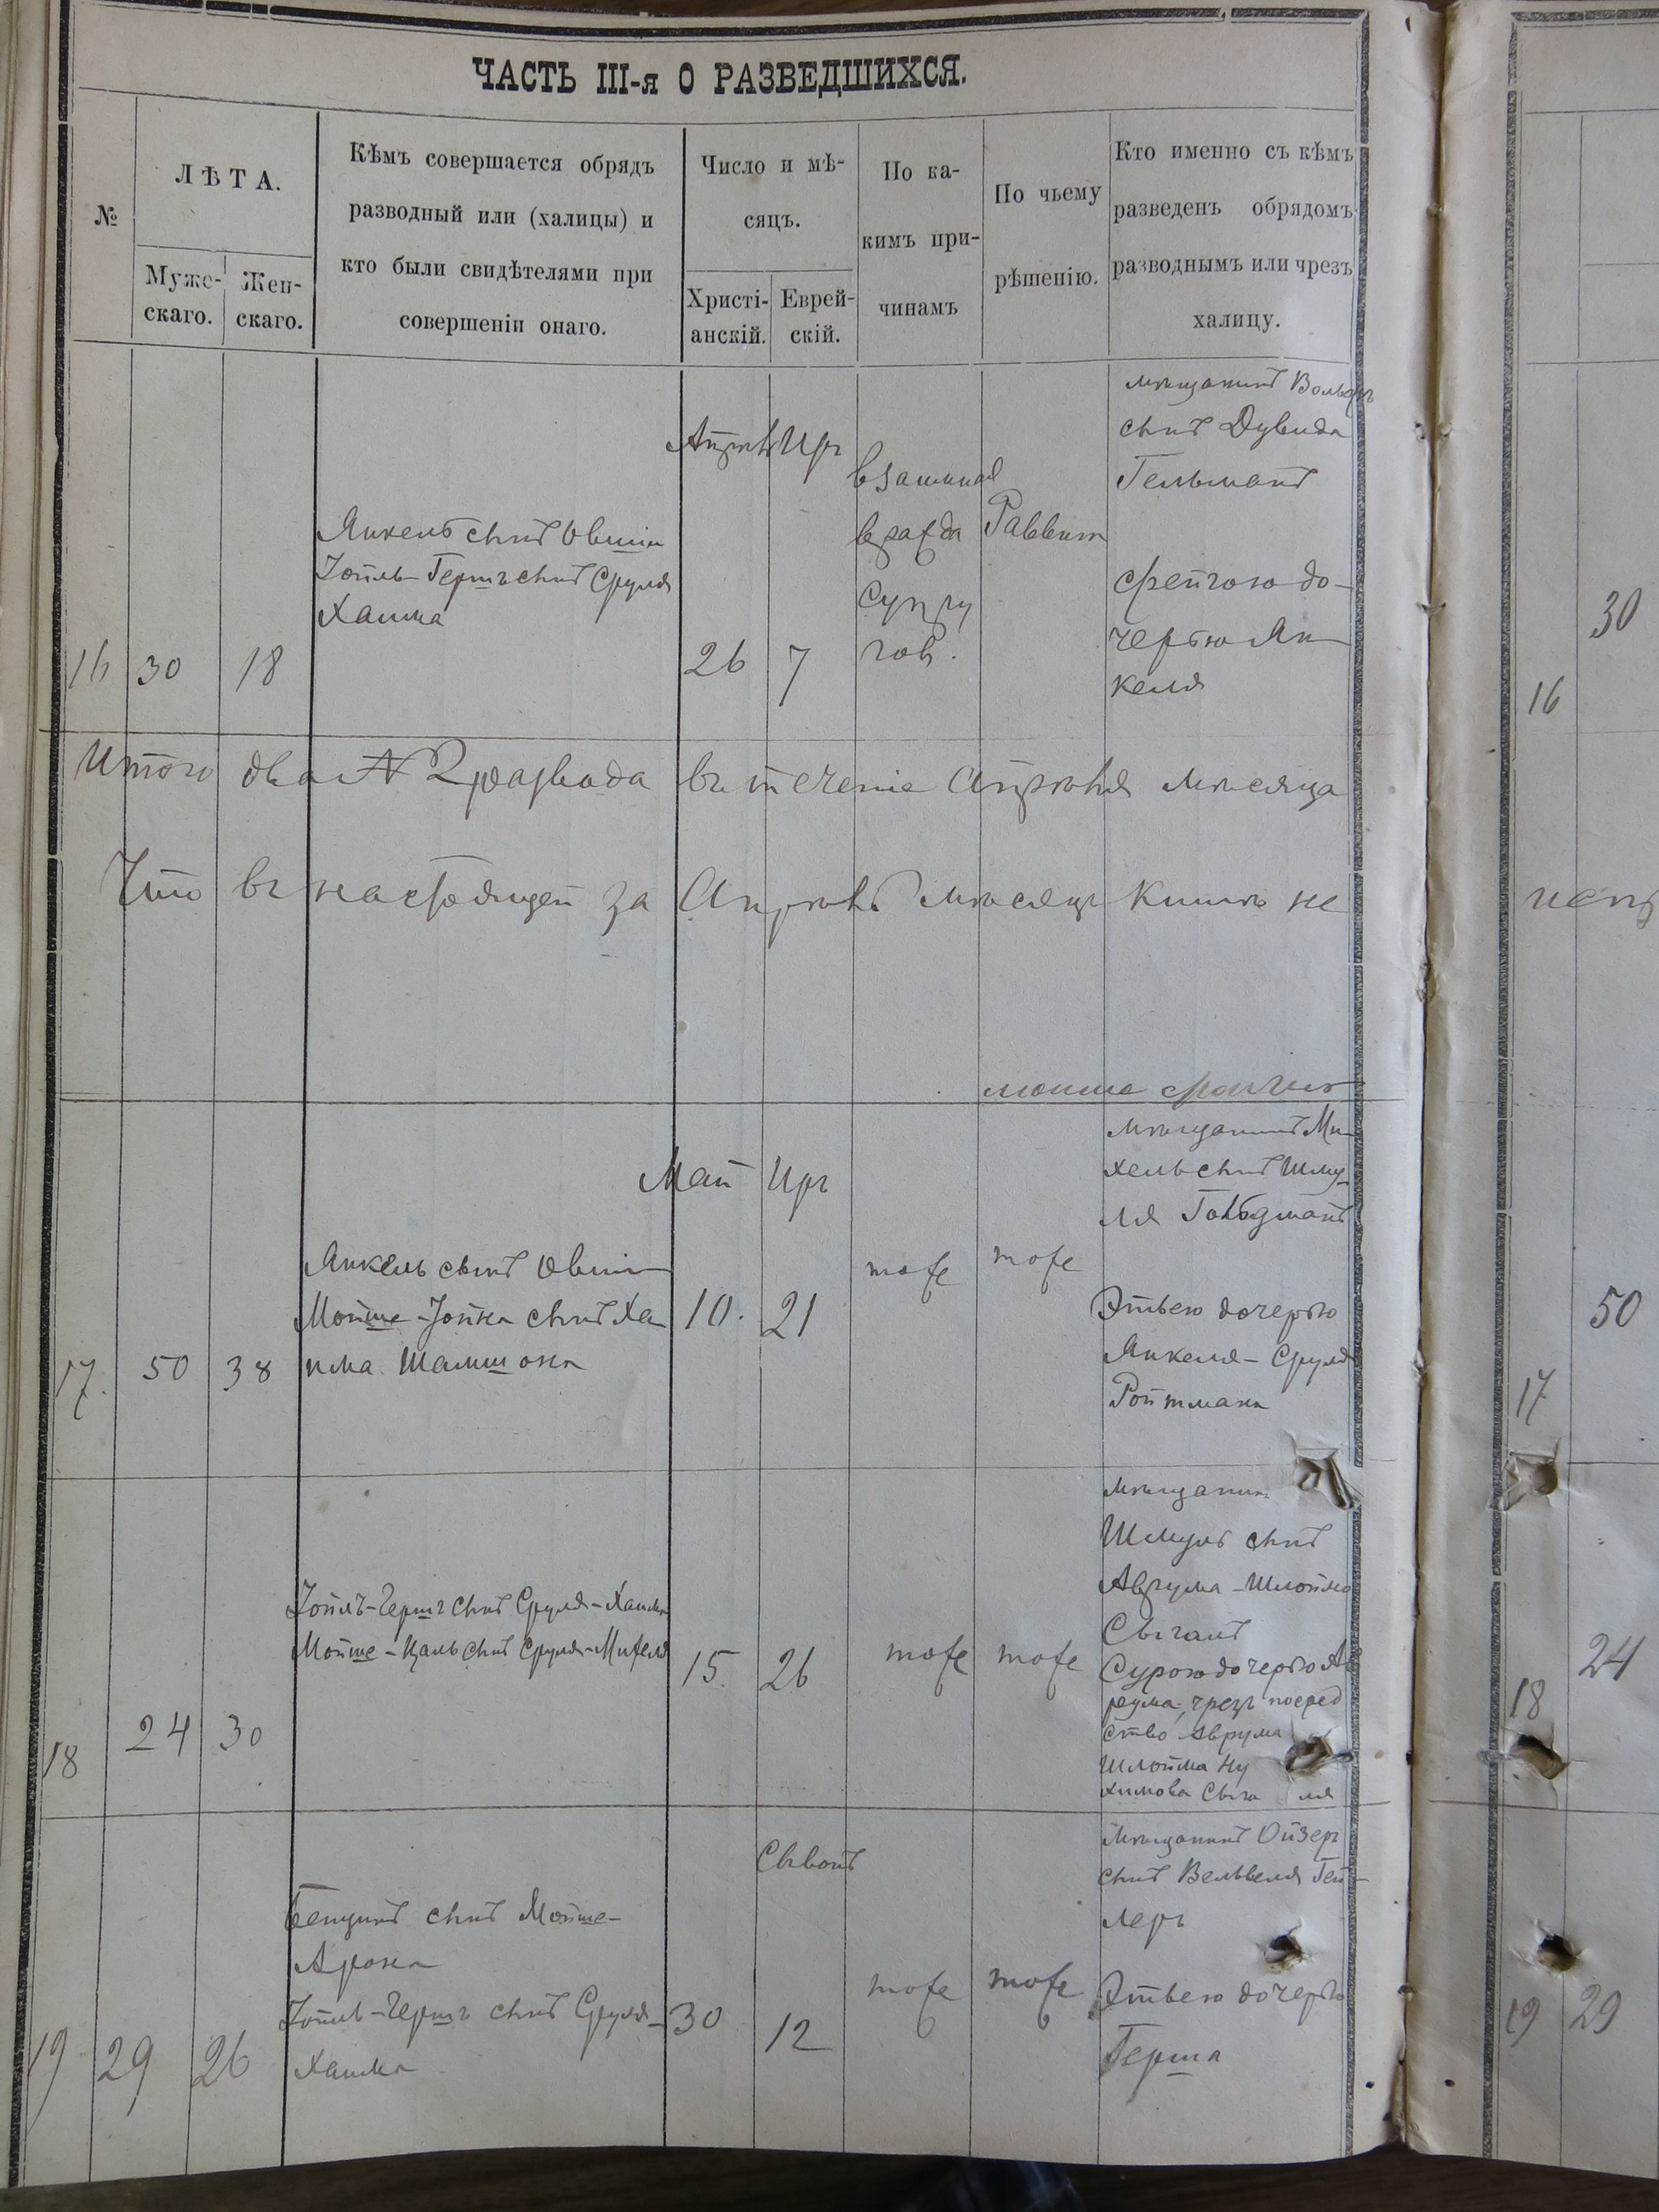 ЧАСТЬ III-я О РАЗВЕДШИХСЯ.
№
ЛѢТА.
Муже-
скаго.
Жен-
скаго.
Кѣмъ совершается обрядъ
разводный или (халицы) и
кто были свидѣтелями при
совершеніи онаго.
Число и мѣ-
сяцъ.
Христі-
анскій.
Еврей-
скій.
По ка-
кимъ при-
чинамъ
По чьему
рѣшенію.
Кто именно съ кѣмъ
разведенъ обрядомъ
разводнымъ или чрезъ
халицу.
16
30
18
Янкель сынъ Овши
Іойль-Гершъ сынъ Сруля
Хаима
Апрѣль
26
Иръ
7
вражда
супру
говъ.
Раввин
мѣщанинъ Вольфъ
сынъ Дувида
Гельманъ
Фейгою до-
черью Ян-
келя
Итого два № 2 развода въ теченіе Апрѣля мѣсяца
Что въ настоящей за Апрѣль мѣсяцъ книгѣ не
17.
50
38
Янкель сынъ Овши
Мойше-Іойна сынъ Ха-
има Шамшона
Май
10.
Иръ
21
тоже
тоже
мѣщанинъ Ми-
хель сынъ Шму-
ля Гольдманъ
Этьею дочерью
Янкеля-Сруля
Ройтмана
18
24
30
Іойлъ-Гершъ сынъ Сруля-Хаима
Мойше-Цаль сынъ Сруля-Мифеля
15.
26
тоже
тоже
мѣщанинъ
Шмуль сынъ
Аврума-Шлойма
Сыгалъ
Сурою дочерью Ав
рума, чрезъ посред
ство Аврума
Шлойма Ну
химова Сыга ля
19
29
26
Бенционъ сынъ Мойше-
Арона
Іойль-Гершъ сынъ Сруля-
Хаима
30
Сывонъ
12
тоже
тоже
мѣщанинъ Ойзеръ
сынъ Вельвеля Гей-
леръ
Этьею дочерью
Герша
30
16
50
17
24
18
19
29